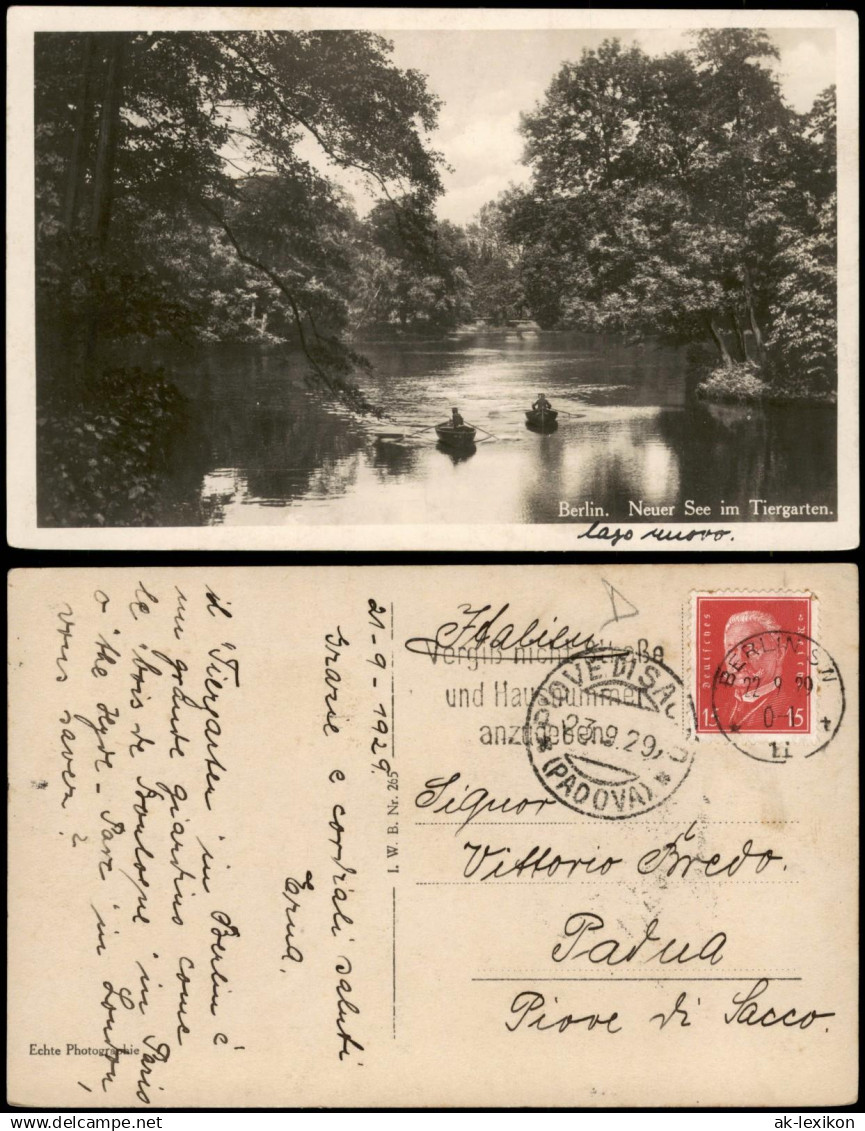 Berlin. Neuer See im Tiergarten.
lago nuovo.
21-9-1929.
Grazie e cordiali saluti
Erna.
il Tiergarten in Berlin é
un grande giardino come
le bois de Boulogne in Paris
o the Hyde-Parc in London,
vous savez?
Echte Photographie
I. W. B. Nr. 265
Italien
Vergiß nicht Straße
und Hausnummer
anzugeben
PIOVE DI SACCO
23.9.29
(PADOVA)
Deutsches Reich
15 15
BERLIN SW
22.9.29
0-1
11
Signor
Vittorio Bredo.
Padua
Piove di Sacco.
ak-lexikon